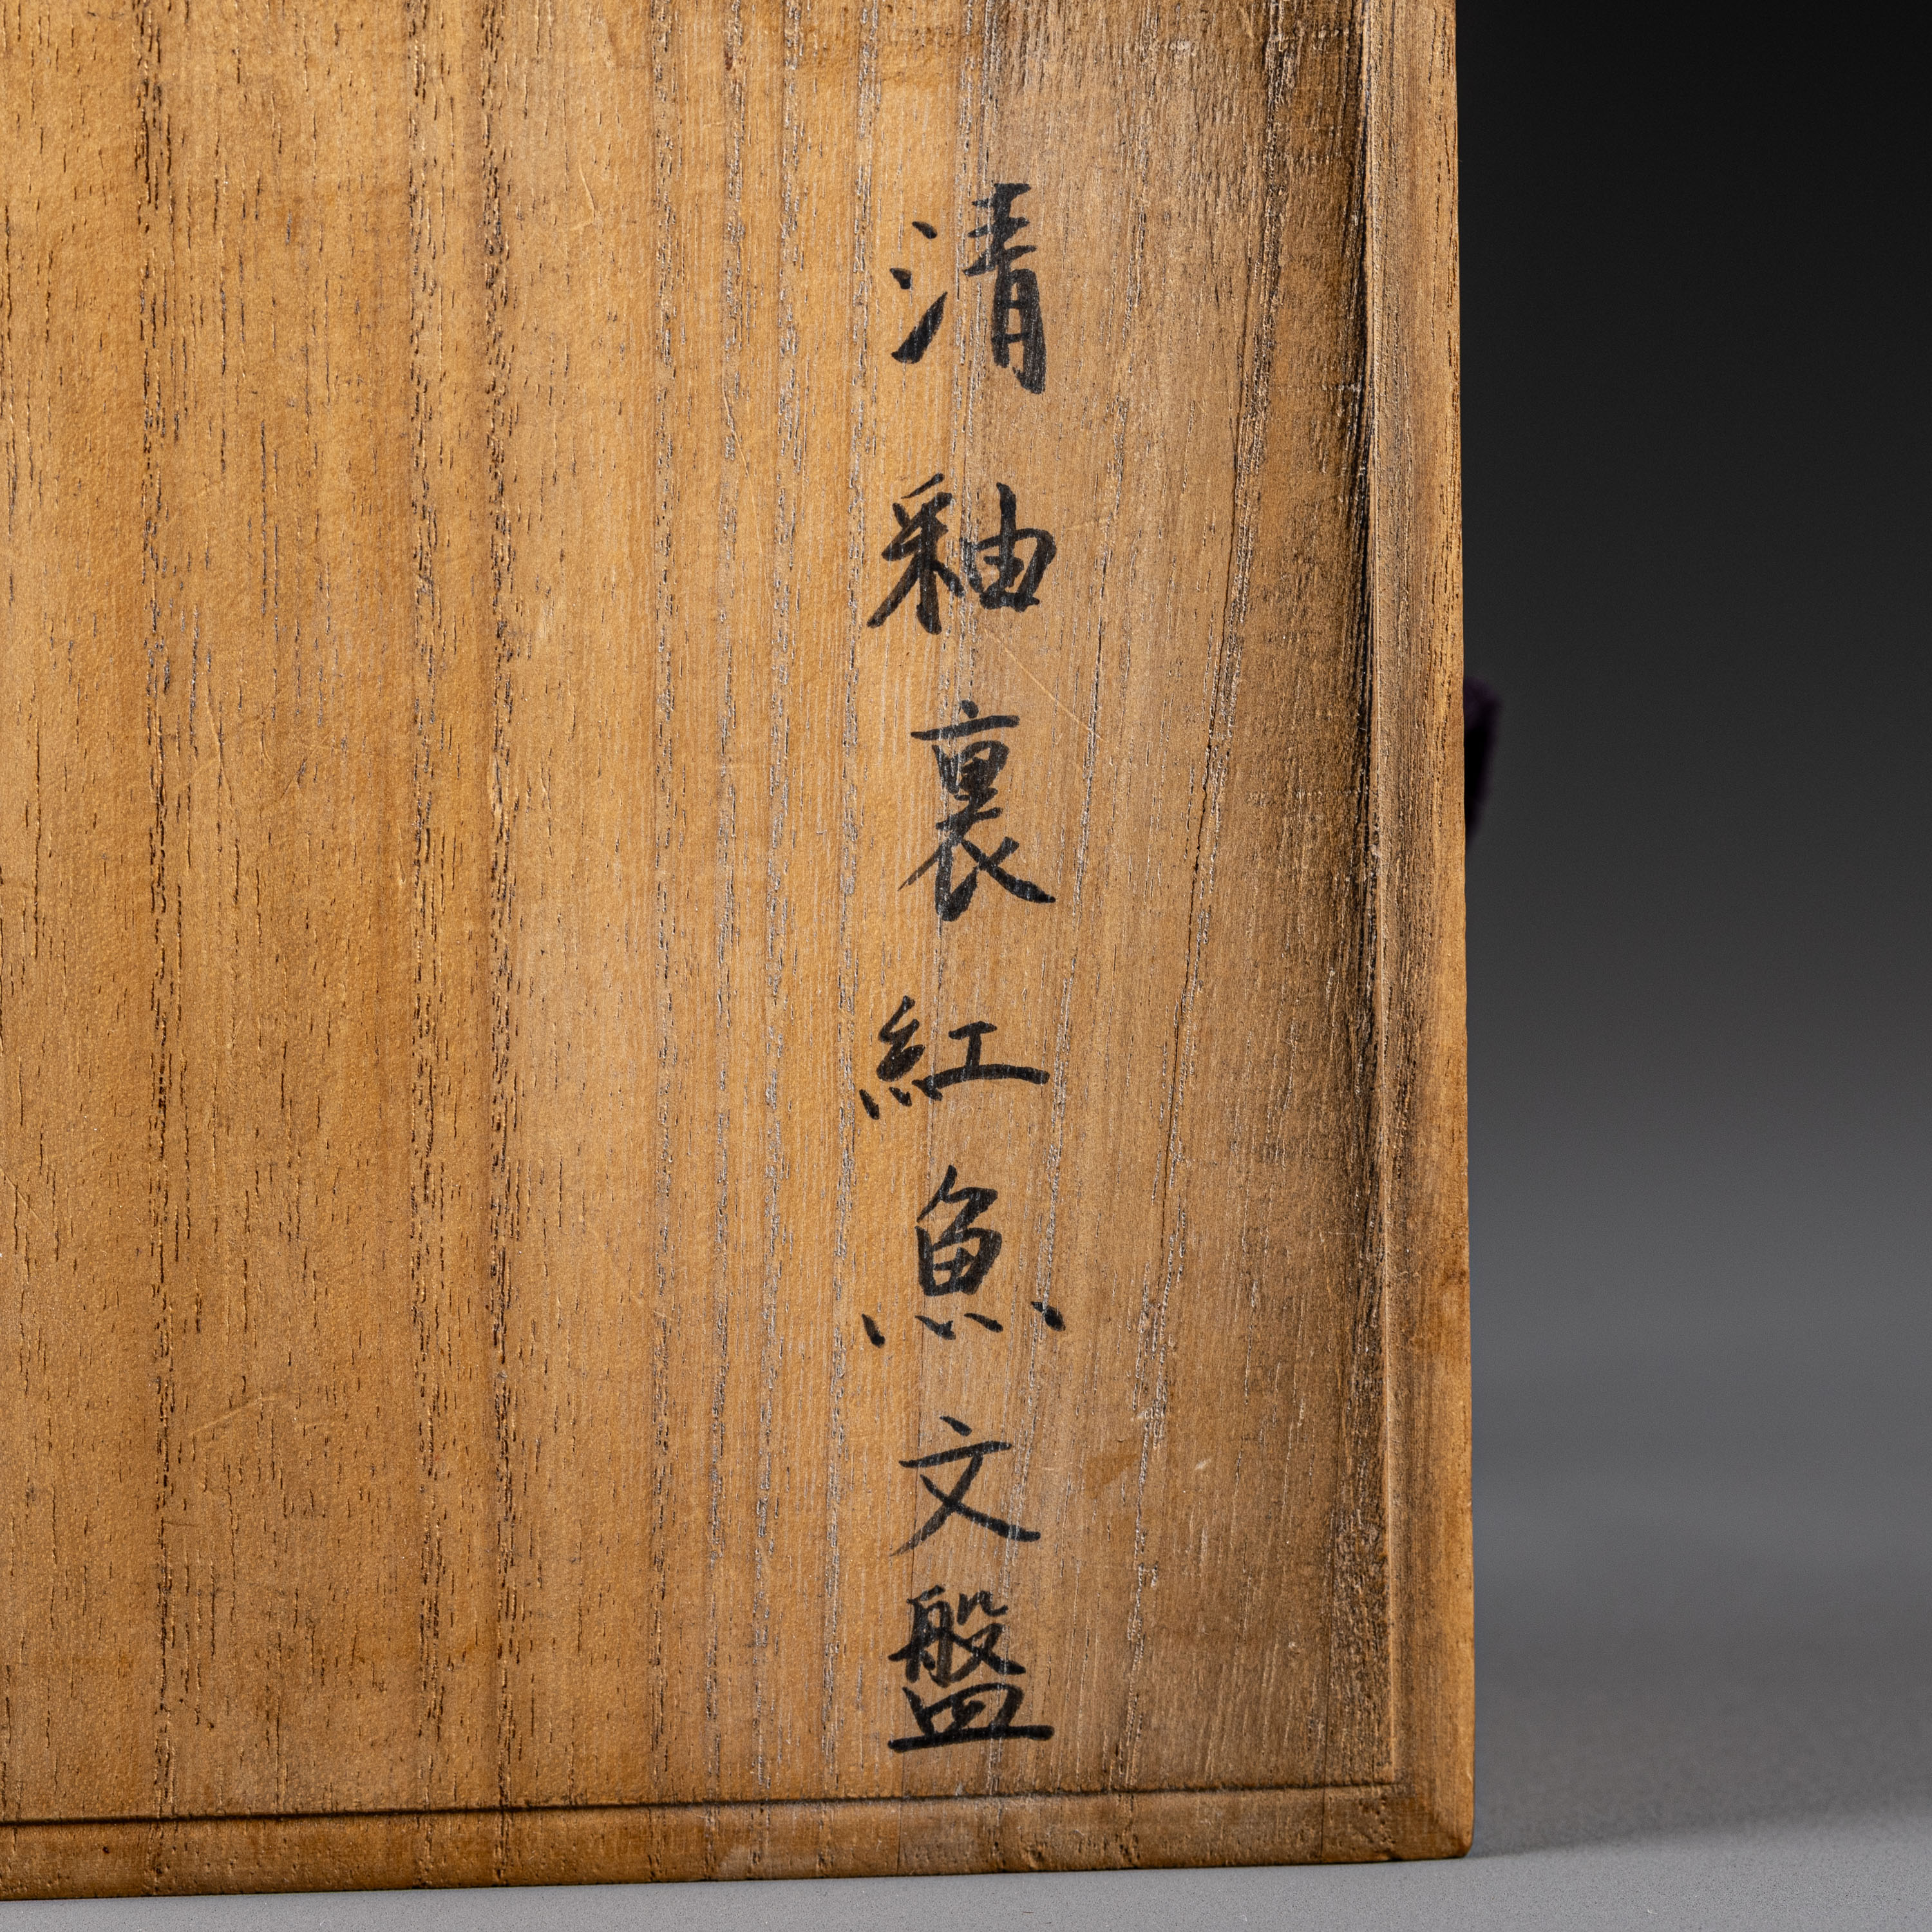 清釉裏紅魚文盤